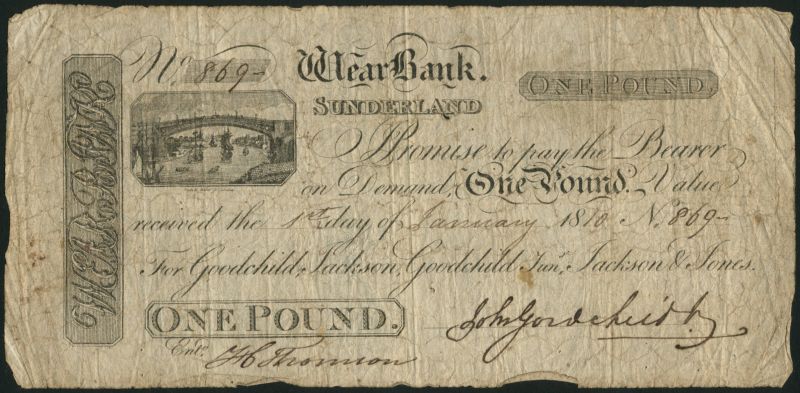 No. 869
Wear Bank.
SUNDERLAND
ONE POUND.
WEAR BANK
I Promise to pay the Bearer
on Demand, One Pound. Value
received the 1st day of January 1810 No. 869
For Goodchild, Jackson, Goodchild Junr. Jackson & Jones.
ONE POUND.
John Goodchild Jr
Entd. Thomson